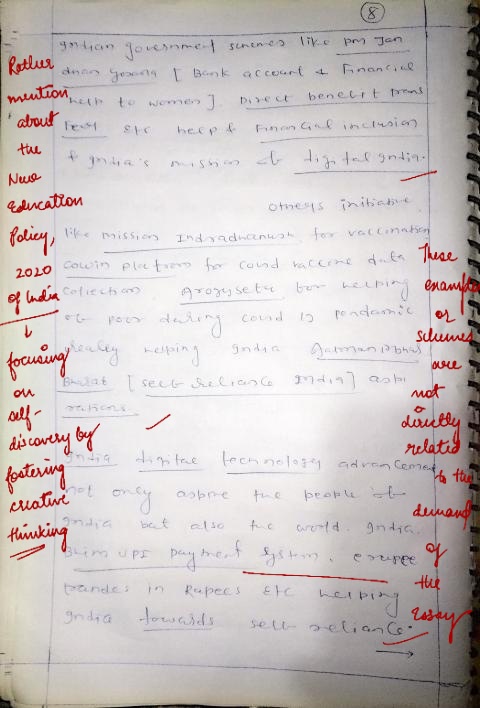 8
Indian government schemes like pm Jan
dhan yojana [ Bank account & Financial
help to women]. Direct benefit trans
fer etc help & Financial inclusion
& India's mission of digital India.
others initiative
like mission Indradhanush for vaccination
cowin platform for covid vaccine data
collection Arogyasetu for helping
of poor during covid 19 pandamic
realey helping India Aatmanirbhar
Bharat [self reliance India] aspi
rations.
India digital technology advancement
not only aspire the people of
India but also the world. India.
Bhim UPI payment system.
in Rupees etc helping
India towards self reliance.
Rather
mention
about
the
New
Education
Policy,
2020
of India
↓
focusing
on
self-
discovery by
fostering
creative
thinking
These
examples
or
schemes
are
not
directly
related
to the
demand
of
the
Essay